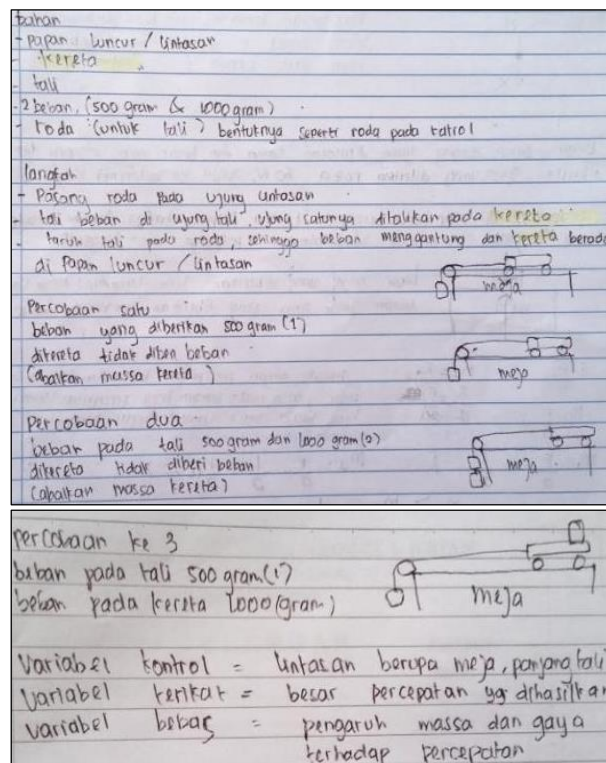 bahan
- papan luncur / lintasan
- kereta
- tali
- 2 beban, (500 gram & 1000 gram)
- roda (untuk tali) bentuknya seperti roda pada katrol
langkah
- Pasang roda pada ujung lintasan
- tali beban di ujung tali, ujung satunya ditalikan pada kereta
- taruh tali pada roda, sehingga beban menggantung dan kereta berada
di papan luncur / lintasan
meja
Percobaan satu
beban yang diberikan 500 gram (1)
dikereta tidak diberi beban
(abaikan massa kereta)
meja
Percobaan dua
beban pada tali 500 gram dan 1000 gram (2)
dikereta tidak diberi beban
(abaikan massa kereta)
meja
percobaan ke 3
beban pada tali 500 gram (1)
beban pada kereta 1000 (gram)
meja
Variabel kontrol = lintasan berupa meja, panjang tali
Variabel terikat = besar percepatan yg dihasilkan
variabel bebas = pengaruh massa dan gaya
terhadap percepatan